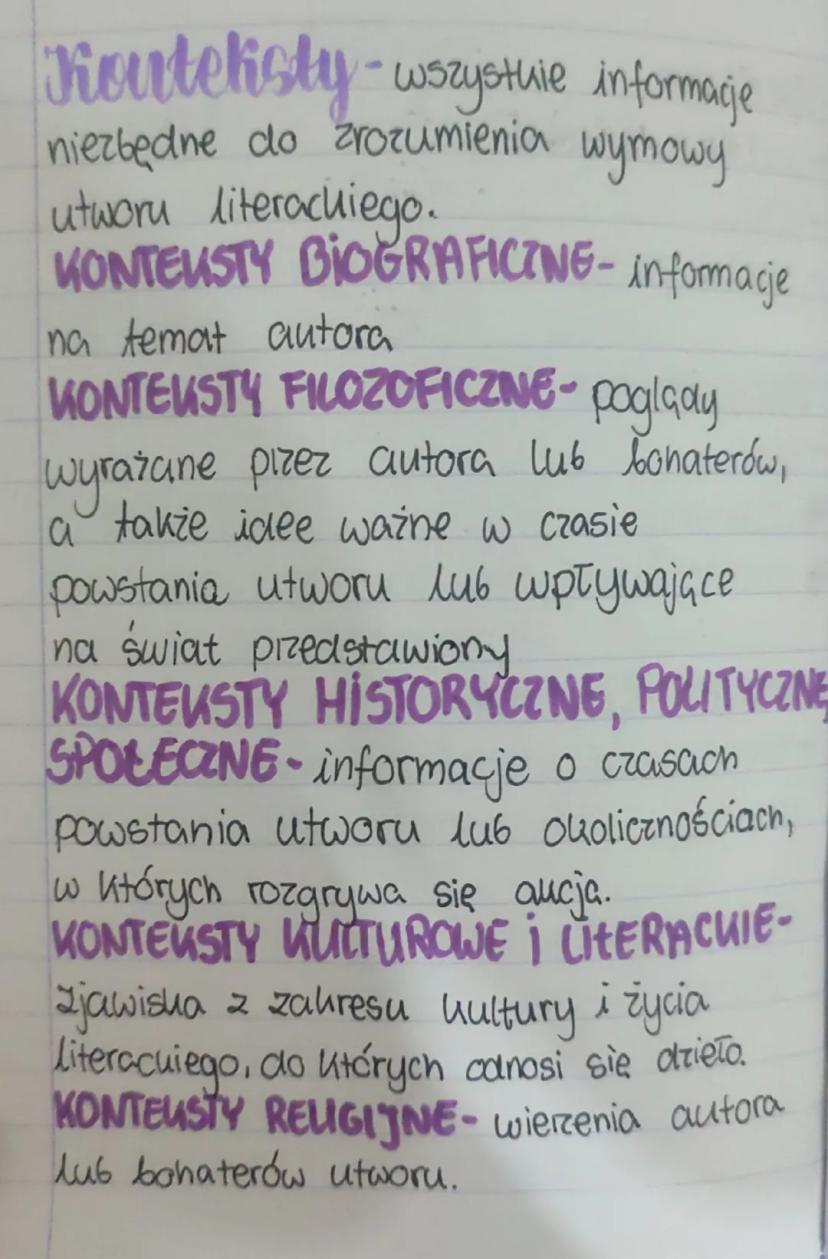 Konteksty - wszystkie informacje
niezbędne do zrozumienia wymowy
utworu literackiego.
KONTEKSTY BIOGRAFICZNE - informacje
na temat autora
KONTEKSTY FILOZOFICZNE - poglądy
wyrażane przez autora lub bohaterów,
a także idee ważne w czasie
powstania utworu lub wpływające
na świat przedstawiony
KONTEKSTY HISTORYCZNE, POLITYCZNE,
SPOŁECZNE - informacje o czasach
powstania utworu lub okolicznościach,
w których rozgrywa się akcja.
KONTEKSTY KULTUROWE i LITERACKIE -
zjawiska z zakresu kultury i życia
literackiego, do których odnosi się dzieło.
KONTEKSTY RELIGIJNE - wierzenia autora
lub bohaterów utworu.